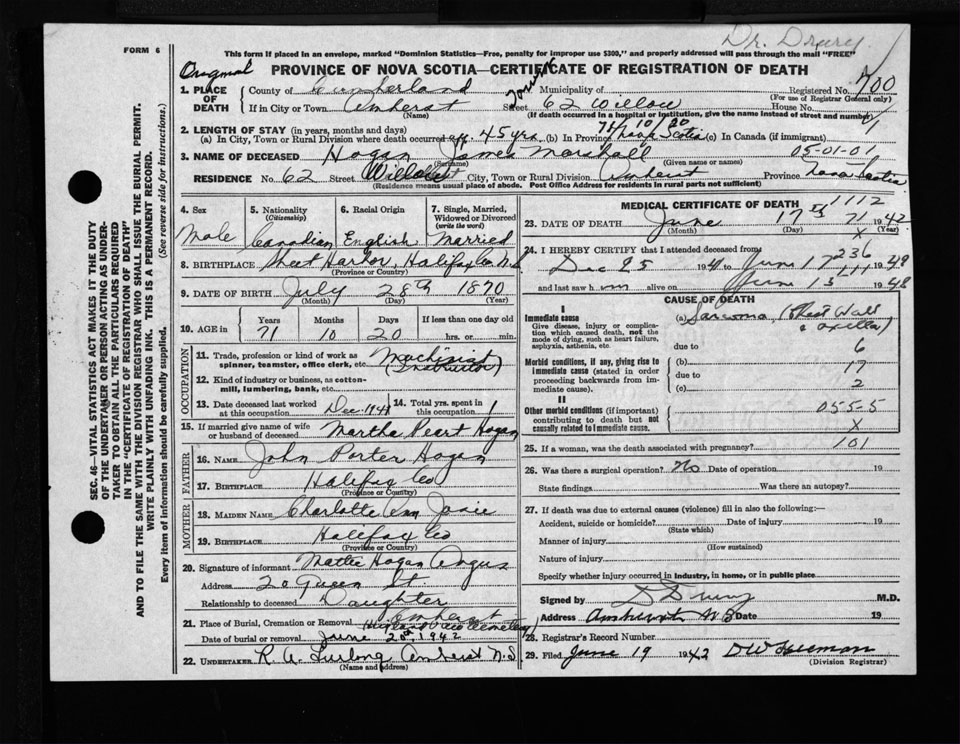 Dr. Drury
FORM 6
This form if placed in an envelope, marked "Dominion Statistics—Free, penalty for improper use $300," and properly addressed will pass through the mail "FREE"
Original PROVINCE OF NOVA SCOTIA—CERTIFICATE OF REGISTRATION OF DEATH
1. PLACE OF DEATH County of Cumberland Municipality of Registered No. 700
(For use of Registrar General only)
If in City or Town Amherst (Name) Street 62 Willow House No.
(If death occurred in a hospital or institution, give the name instead of street and number)
2. LENGTH OF STAY (in years, months and days) 71/10/20
(a) In City, Town or Rural Division where death occurred 45 yrs. (b) In Province Nova Scotia (c) In Canada (if immigrant)
3. NAME OF DECEASED Hogan James Marshall 05-01-01
(Surname) (Given name or names)
RESIDENCE No. 62 Street Willow St City, Town or Rural Division Amherst Province Nova Scotia
(Residence means usual place of abode. Post Office Address for residents in rural parts not sufficient)
SEC. 46—VITAL STATISTICS ACT MAKES IT THE DUTY
OF THE UNDERTAKER OR PERSON ACTING AS UNDER-
TAKER TO OBTAIN ALL THE PARTICULARS REQUIRED
IN THE "CERTIFICATE OF REGISTRATION OF DEATH"
AND TO FILE THE SAME WITH THE DIVISION REGISTRAR WHO SHALL ISSUE THE BURIAL PERMIT.
WRITE PLAINLY WITH UNFADING INK. THIS IS A PERMANENT RECORD.
Every item of information should be carefully supplied. (See reverse side for instructions.)
4. Sex 5. Nationality (Citizenship) 6. Racial Origin 7. Single, Married, Widowed or Divorced (write the word)
Male Canadian English Married
8. BIRTHPLACE Sheet Harbor, Halifax Co. N.S
(Province or Country)
9. DATE OF BIRTH July 28th 1870
(Month) (Day) (Year)
10. AGE in Years Months Days If less than one day old
71 10 20 hrs. or min.
OCCUPATION
11. Trade, profession or kind of work as spinner, teamster, office clerk, etc. Machinist (Instructor)
12. Kind of industry or business, as cotton-mill, lumbering, bank, etc.
13. Date deceased last worked at this occupation Dec. 1941 14. Total yrs. spent in this occupation 1
15. If married give name of wife or husband of deceased Martha Peart Hogan
FATHER
16. NAME John Porter Hogan
17. BIRTHPLACE Halifax Co
(Province or Country)
MOTHER
18. MAIDEN NAME Charlotte Ann
19. BIRTHPLACE Halifax Co
(Province or Country)
20. Signature of informant Mattie Hogan Angus
Address 20 Queen St.
Relationship to deceased Daughter
21. Place of Burial, Cremation or Removal Amherst Highland View Cemetery
Date of burial or removal June 20th, 1942
22. UNDERTAKER R. A. Furlong Amherst N.S
(Name and address)
MEDICAL CERTIFICATE OF DEATH 1112
23. DATE OF DEATH June 17th 71 1942
(Month) (Day) X (Year)
24. I HEREBY CERTIFY that I attended deceased from 236
Dec 25 1941 to June 17 1942
and last saw him alive on June 13 1942
CAUSE OF DEATH
I
Immediate cause (a) Sarcoma (Chest Wall & axilla)
Give disease, injury or complication which caused death, not the mode of dying, such as heart failure, asphyxia, asthenia, etc.
due to 6
Morbid conditions, if any, giving rise to immediate cause (stated in order proceeding backwards from immediate cause). (b) 17
due to
(c) 2
II
Other morbid conditions (if important) contributing to death but not causally related to immediate cause. 055-5
X
25. If a woman, was the death associated with pregnancy? 101
26. Was there a surgical operation? No Date of operation 19
State findings Was there an autopsy?
27. If death was due to external causes (violence) fill in also the following:—
Accident, suicide or homicide? Date of injury 19
(State which)
Manner of injury
(How sustained)
Nature of injury
Specify whether injury occurred in industry, in home, or in public place
Signed by D Drury M.D.
Address Amherst N.S Date 19
28. Registrar's Record Number
29. Filed June 19 1942
(Division Registrar)